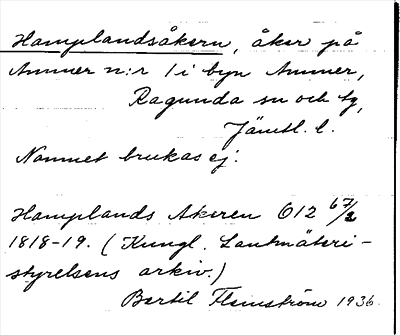 Hamplandsåkern, åker på
Ammer n:r 1 i byn Ammer,
Ragunda sn och tg,
Jämtl. l.
Namnet brukas ej.
Hamplands Akeren O12 67/2
1818-19. (Kungl. Lantmäteri-
styrelsens arkiv.)
Bertil Flemström 1936.